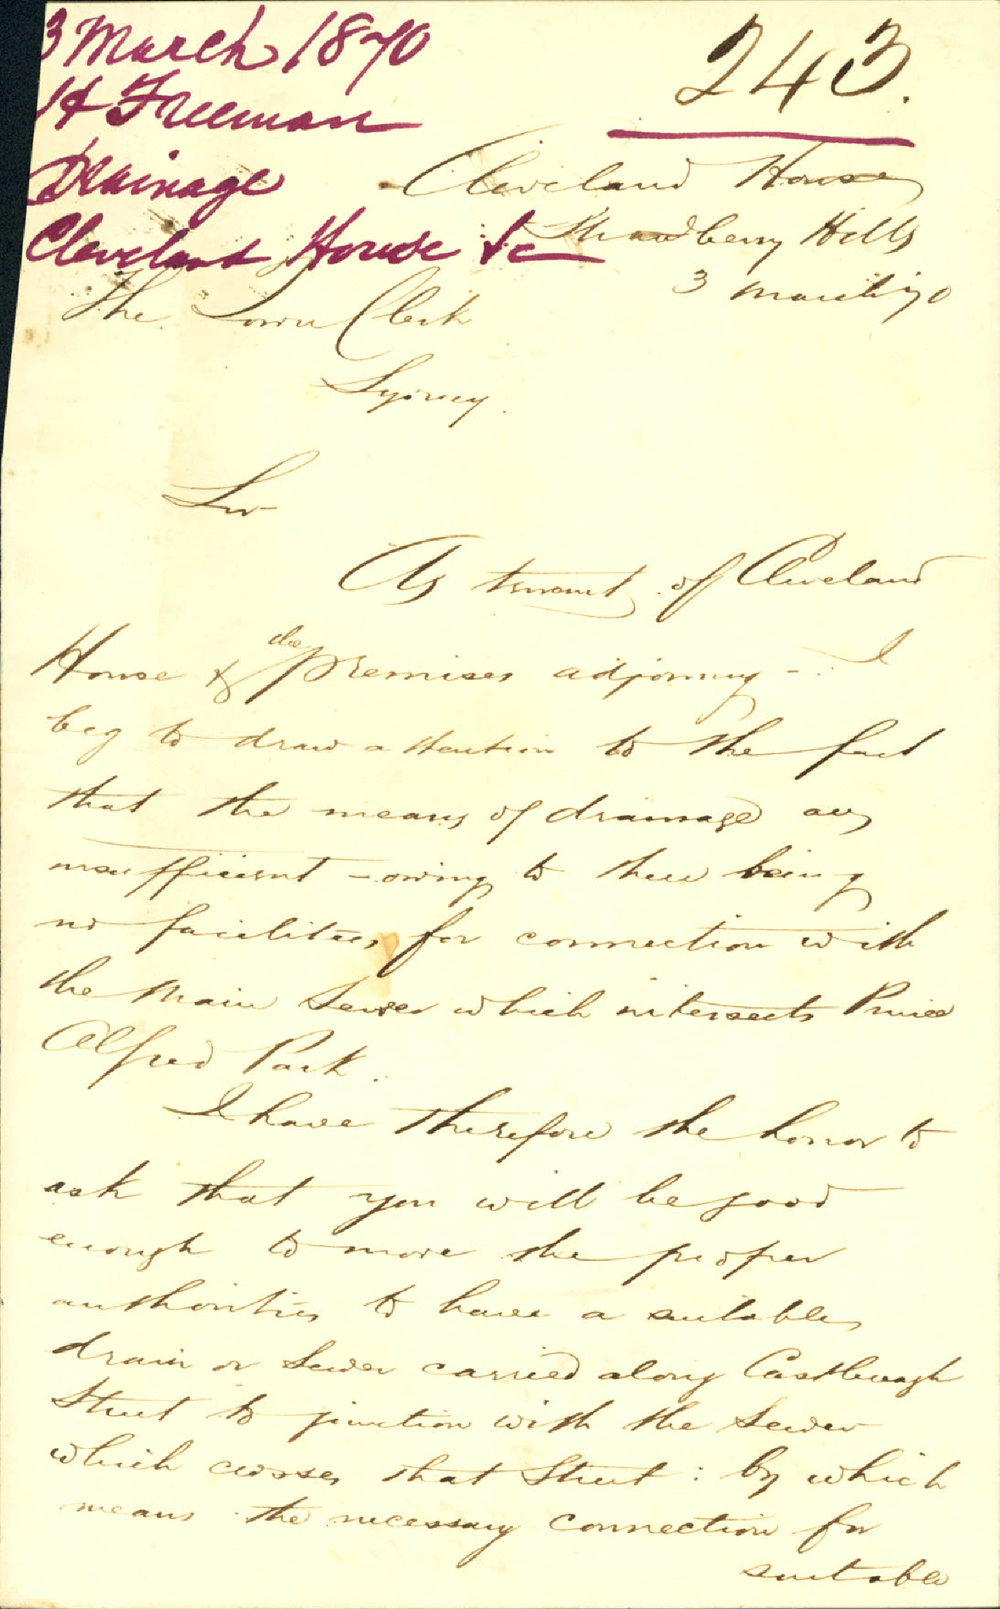 3 March 1870
H Freeman
Drainage
Cleveland House &c
243.
Cleveland House
Strawberry Hills
3 March 70
The Town Clerk
Sydney.
Sir
As tenant of Cleveland
House & the premises adjoining - I
beg to draw attention to the fact
that the means of drainage are
insufficient - owing to there being
no facilities, for connection with
the Main Sewer which intersects Prince
Alfred Park.
I have therefore the honor to
ask that you will be good
enough to move the proper
authorities to have a suitable
drain or Sewer carried along Castlereagh
Street to junction with the Sewer
which crosses that Street : by which
means the necessary connection for
suitable